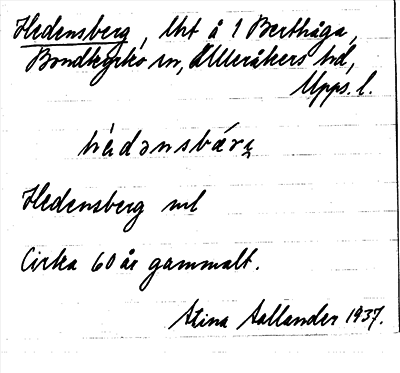 Hedensberg, lht å 1 Berthåga,
Bondkyrko sn, Ulleråkers hd,
Upps. l.
hèdənsbærg
Hedensberg ml
Cirka 60 år gammalt.
Stina Sallander 1937.